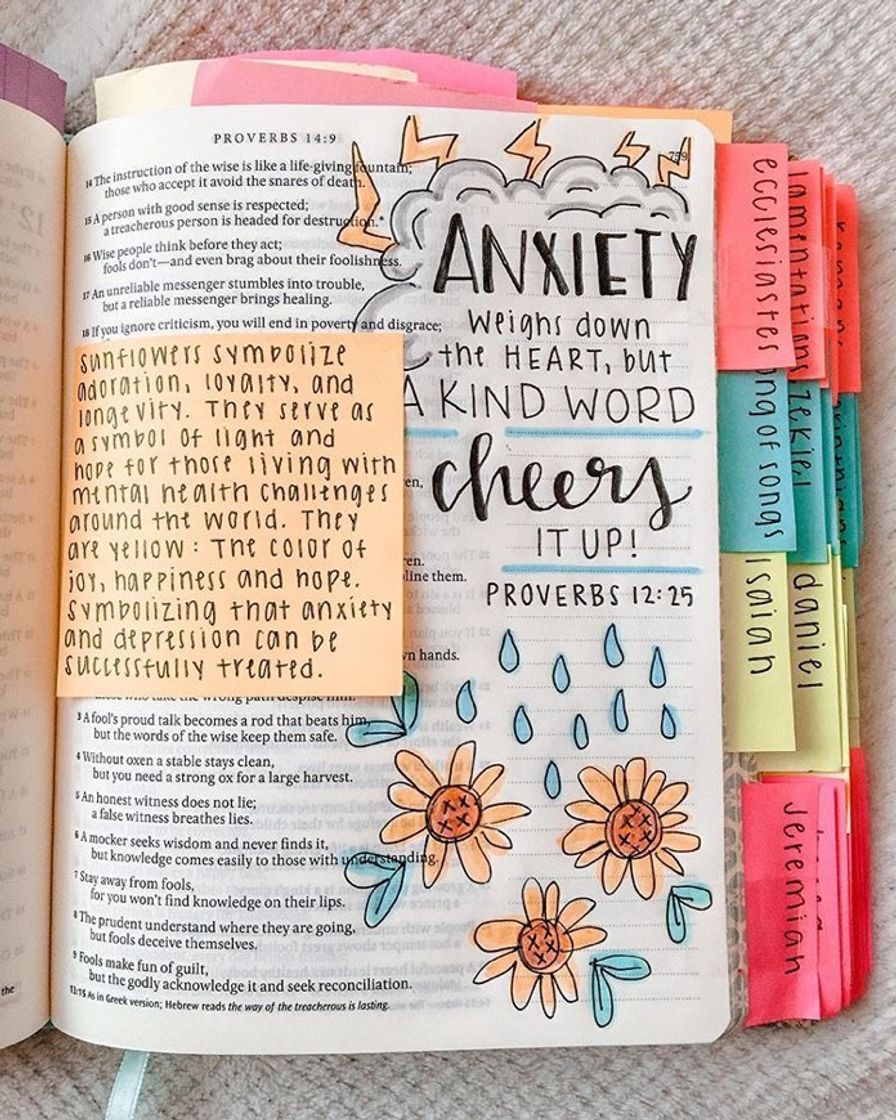 PROVERBS 14:9
759
14 The instruction of the wise is like a life-giving fountain;
those who accept it avoid the snares of death.
15 A person with good sense is respected;
a treacherous person is headed for destruction.*
16 Wise people think before they act;
fools don't—and even brag about their foolishness.
17 An unreliable messenger stumbles into trouble,
but a reliable messenger brings healing.
18 If you ignore criticism, you will end in poverty and disgrace;
sunflowers symbolize
adoration, loyalty, and
longevity. They serve as
a symbol of light and
hope for those living with
mental health challenges
around the world. They
are yellow: The color of
joy, happiness and hope.
Symbolizing that anxiety
and depression can be
successfully treated.
line them.
hands.
3 A fool's proud talk becomes a rod that beats him,
but the words of the wise keep them safe.
4 Without oxen a stable stays clean,
but you need a strong ox for a large harvest.
5 An honest witness does not lie;
a false witness breathes lies.
6 A mocker seeks wisdom and never finds it,
but knowledge comes easily to those with understanding.
7 Stay away from fools,
for you won't find knowledge on their lips.
8 The prudent understand where they are going,
but fools deceive themselves.
9 Fools make fun of guilt,
but the godly acknowledge it and seek reconciliation.
13:15 As in Greek version; Hebrew reads the way of the treacherous is lasting.
ANXIETY
Weighs down
the HEART, but
A KIND WORD
cheers
IT UP!
PROVERBS 12:25
ecclesiastes
lamentations
ng of songs
zekiel
isaiah
daniel
Jeremiah
the